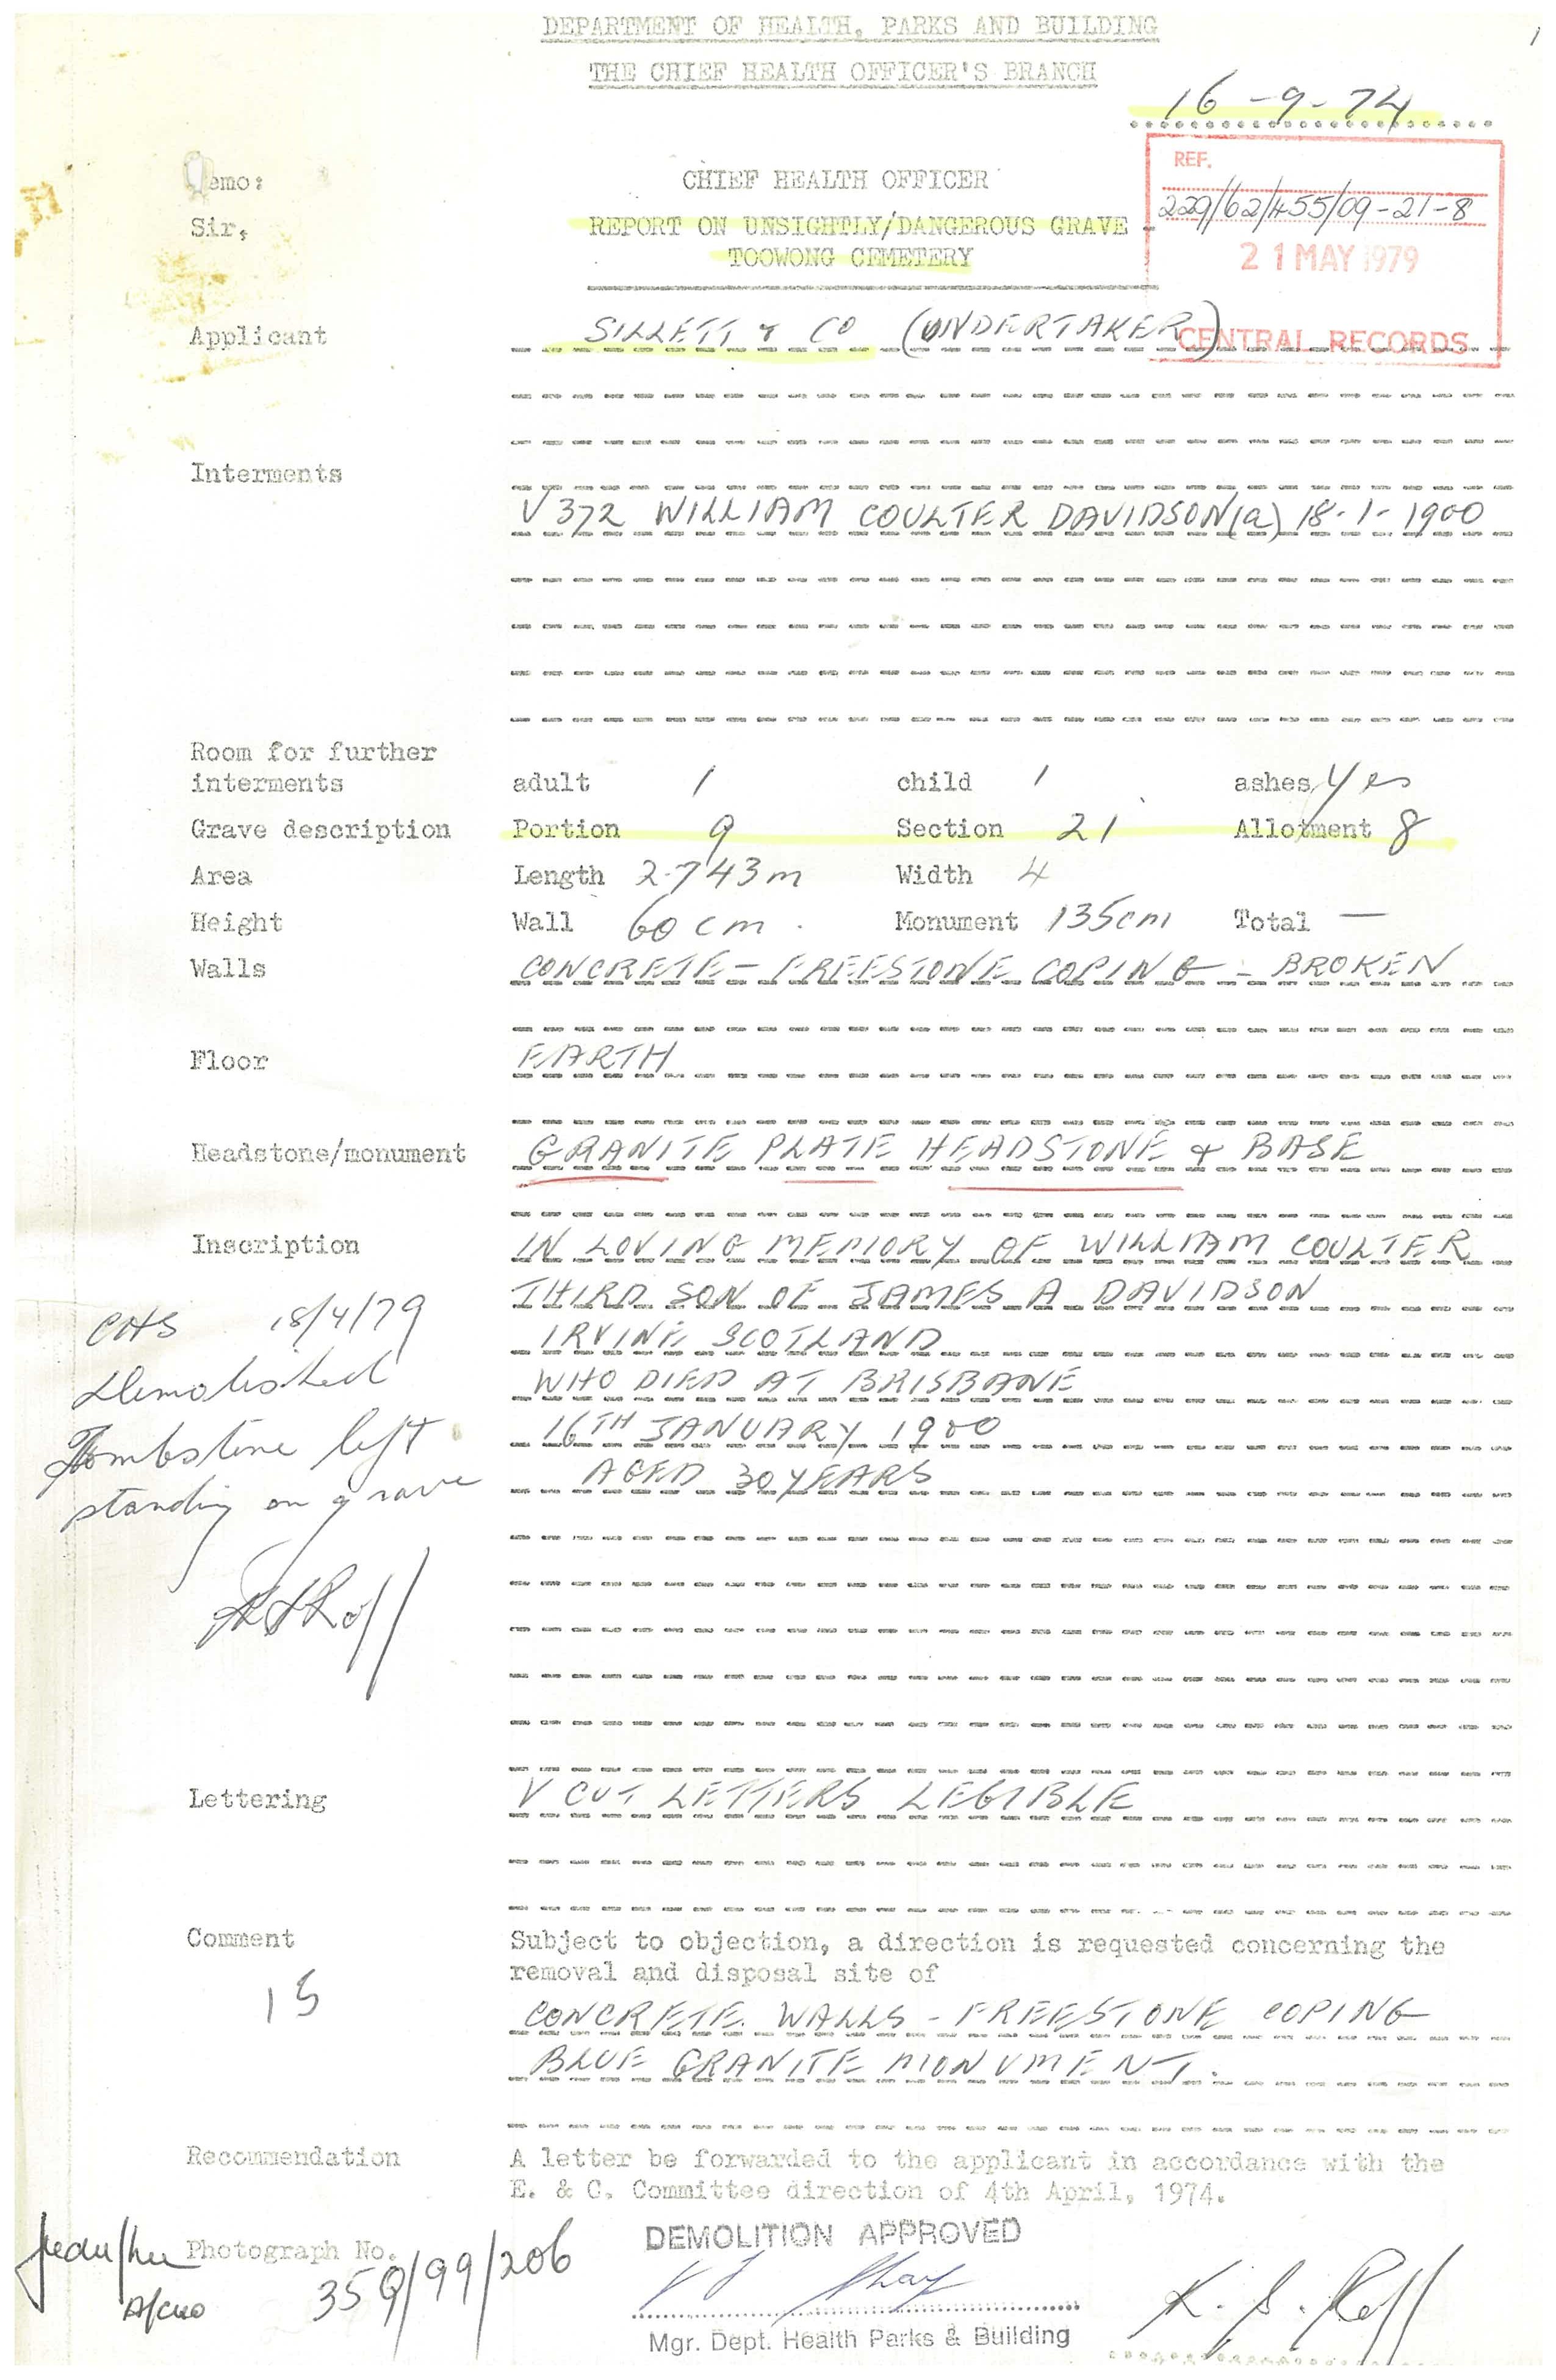 DEPARTMENT OF HEALTH, PARKS AND BUILDING
THE CHIEF HEALTH OFFICER'S BRANCH
16-9-74
REF.
229/62/455/09-21-8
21 MAY 1979
CENTRAL RECORDS
emo:
CHIEF HEALTH OFFICER
Sir,
REPORT ON UNSIGHTLY/DANGEROUS GRAVE -
TOOWONG CEMETERY
Applicant SILLETT & CO (UNDERTAKER)
Interments
V372 WILLIAM COULTER DAVIDSON (a) 18-1-1900
Room for further
interments adult 1 child 1 ashes Yes
Grave description Portion 9 Section 21 Allotment 8
Area Length 2.743m Width 4
Height Wall 60cm. Monument 135cm Total —
Walls CONCRETE - FREESTONE COPING - BROKEN
Floor EARTH
Headstone/monument GRANITE PLATE HEADSTONE & BASE
Inscription IN LOVING MEMORY OF WILLIAM COULTER
THIRD SON OF JAMES A DAVIDSON
IRVINE SCOTLAND
WHO DIED AT BRISBANE
16TH JANUARY 1900
AGED 30 YEARS
CHS 18/4/79
Demolished
Tombstone left
standing on grave
Lettering V CUT LETTERS LEGIBLE
Comment Subject to objection, a direction is requested concerning the
removal and disposal site of
15
CONCRETE WALLS - FREESTONE COPING
BLUE GRANITE MONUMENT.
Recommendation A letter be forwarded to the applicant in accordance with the
E. & C. Committee direction of 4th April, 1974.
Photograph No.
359/99/206
A/CHO
DEMOLITION APPROVED
Mgr. Dept. Health Parks & Building